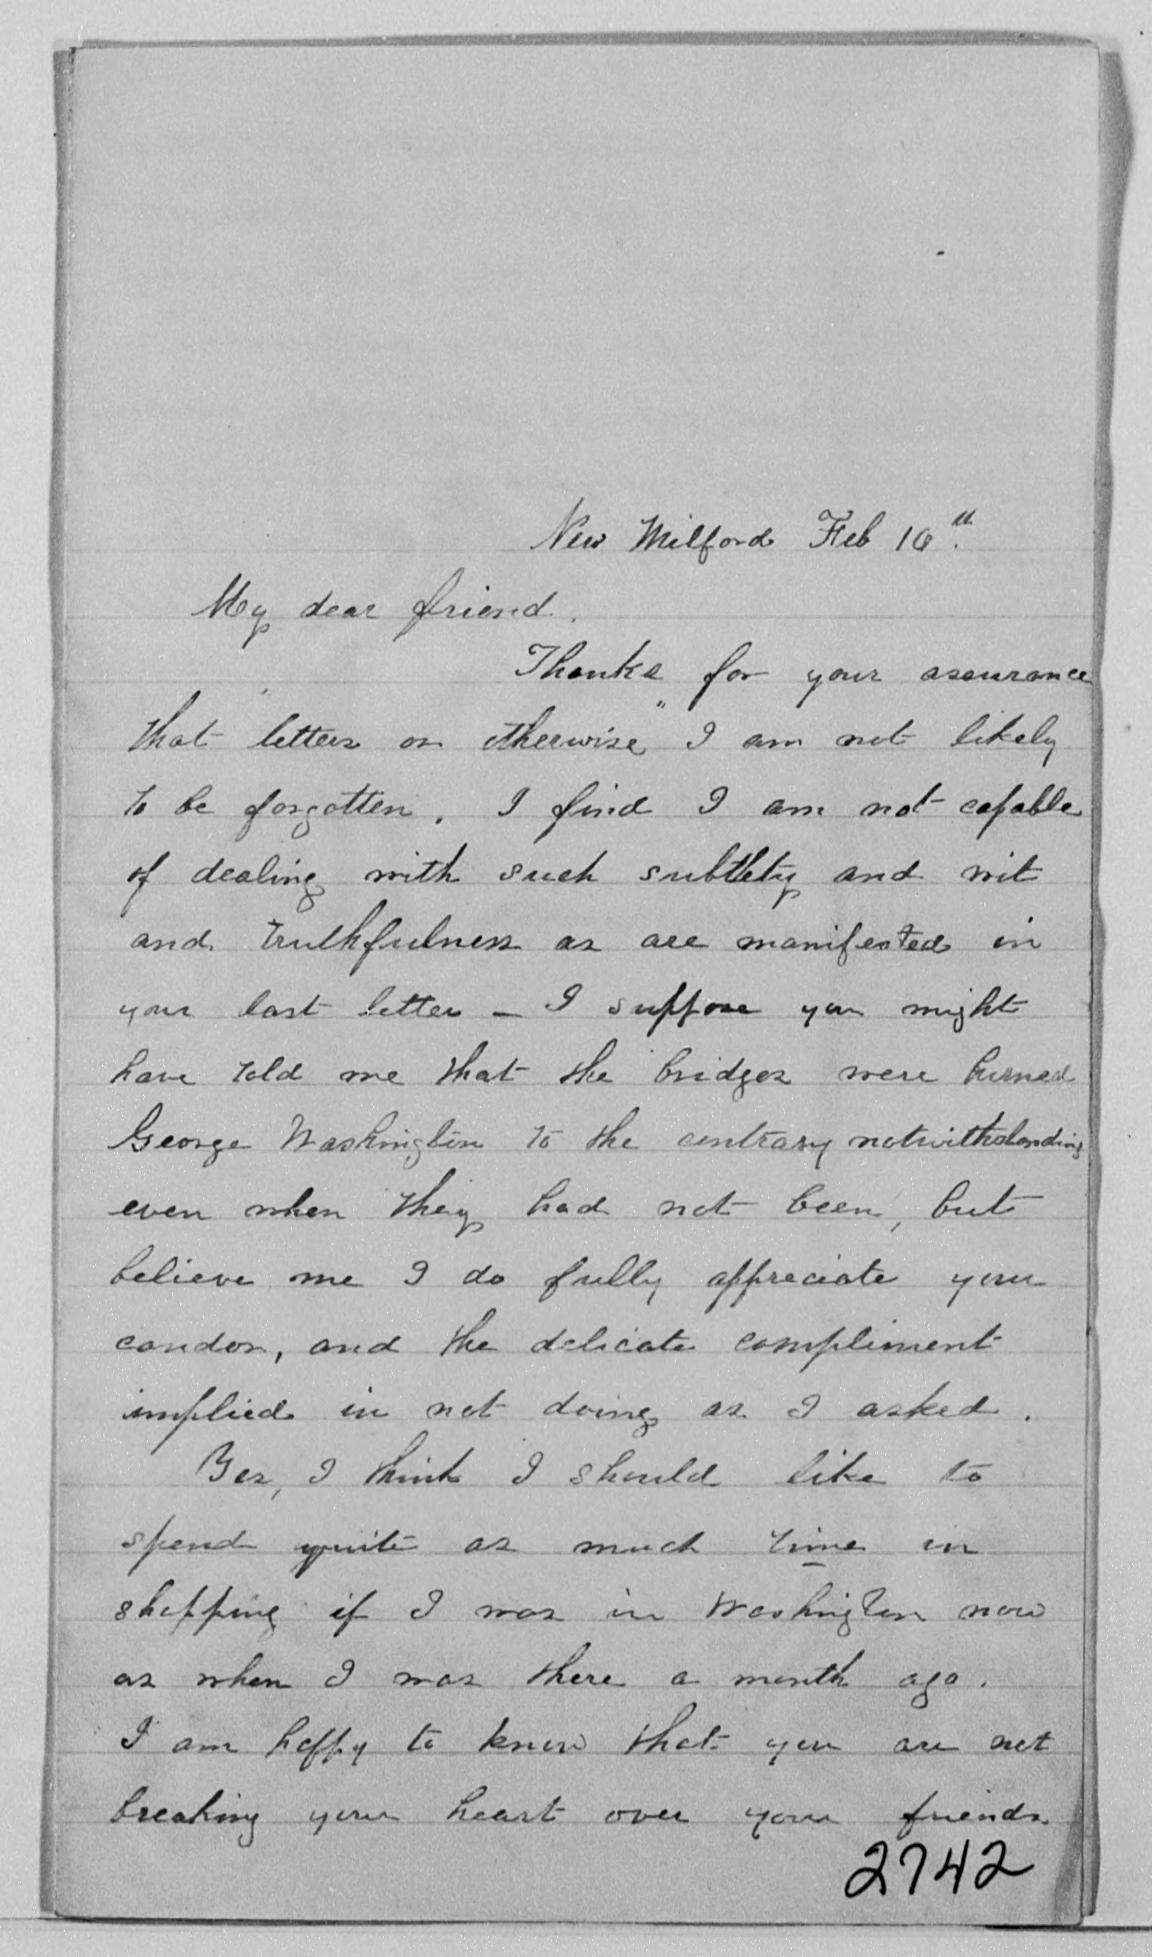 New Milford Feb 16th.
My dear friend.
Thanks for your assurance
that "letters or otherwise" I am not likely
to be forgotten. I find I am not capable
of dealing with such subtlety and wit
and truthfulness as are manifested in
your last letter – I suppose you might
have told me that the bridges were burned
George Washington to the contrary notwithstanding
even when they had not been, but
believe me I do fully appreciate your
candor, and the delicate compliment
implied in not doing as I asked.
Yes, I think I should like to
spend quite as much time in
shopping if I was in Washington now
as when I was there a month ago.
I am happy to know that you are not
breaking your heart over your friends
2742